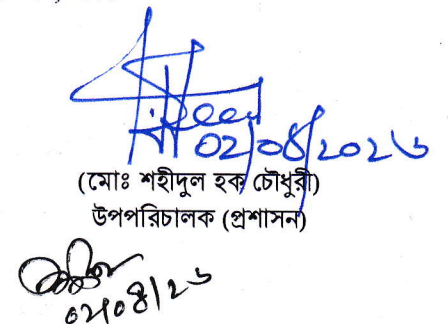 02/08/202৬
(মোঃ শহীদুল হক চৌধুরী)
উপপরিচালক (প্রশাসন)
০২/০৪/২৬